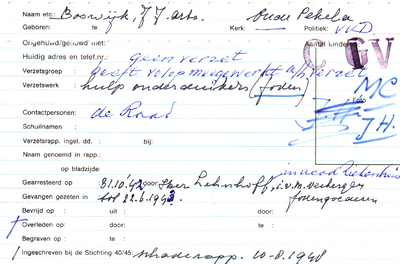 Naam etc: Boswijk, J J arts. Oude Pekela
Geboren: te Kerk: Politiek: VVD.
Ongehuwd/gehuwd met: Aantal kinderen:
Huidig adres en telef.nr.: geen verzet C GV
Verzetsgroep : heeft volop meegewerkt a/h verzet
Verzetswerk : hulp onderduikers (Joden) MC
Contactpersonen: de Raad
Schuilnaam : J H.
Verzetsrapp. ingel. dd. : bij:
Naam genoemd in rapp.:
op bladzijde: in acad. Ziekenhuis
Gearresteerd op : 31.10.'42 door: Lehnhoff, i.v.m. verbergen
Gevangen gezeten in : tot 22.6.194 Joden
Bevrijd op - : uit : door:
† Overleden op: : te : door:
Begraven op - : te :
Ingeschreven bij de Stichting 40/45: schaderapp. 10-8.1948